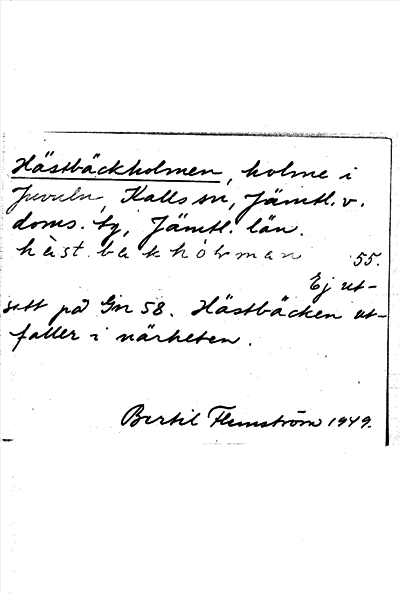 Hästbäckholmen, holme i
Juvuln, Kalls sn, Jämtl. v.
doms. bg, Jämtl. län.
hàst bakhòlman 55.
Ej ut-
satt på Gn 58. Hästbäcken ut-
faller i närheten.
Bertil Flemström 1949.